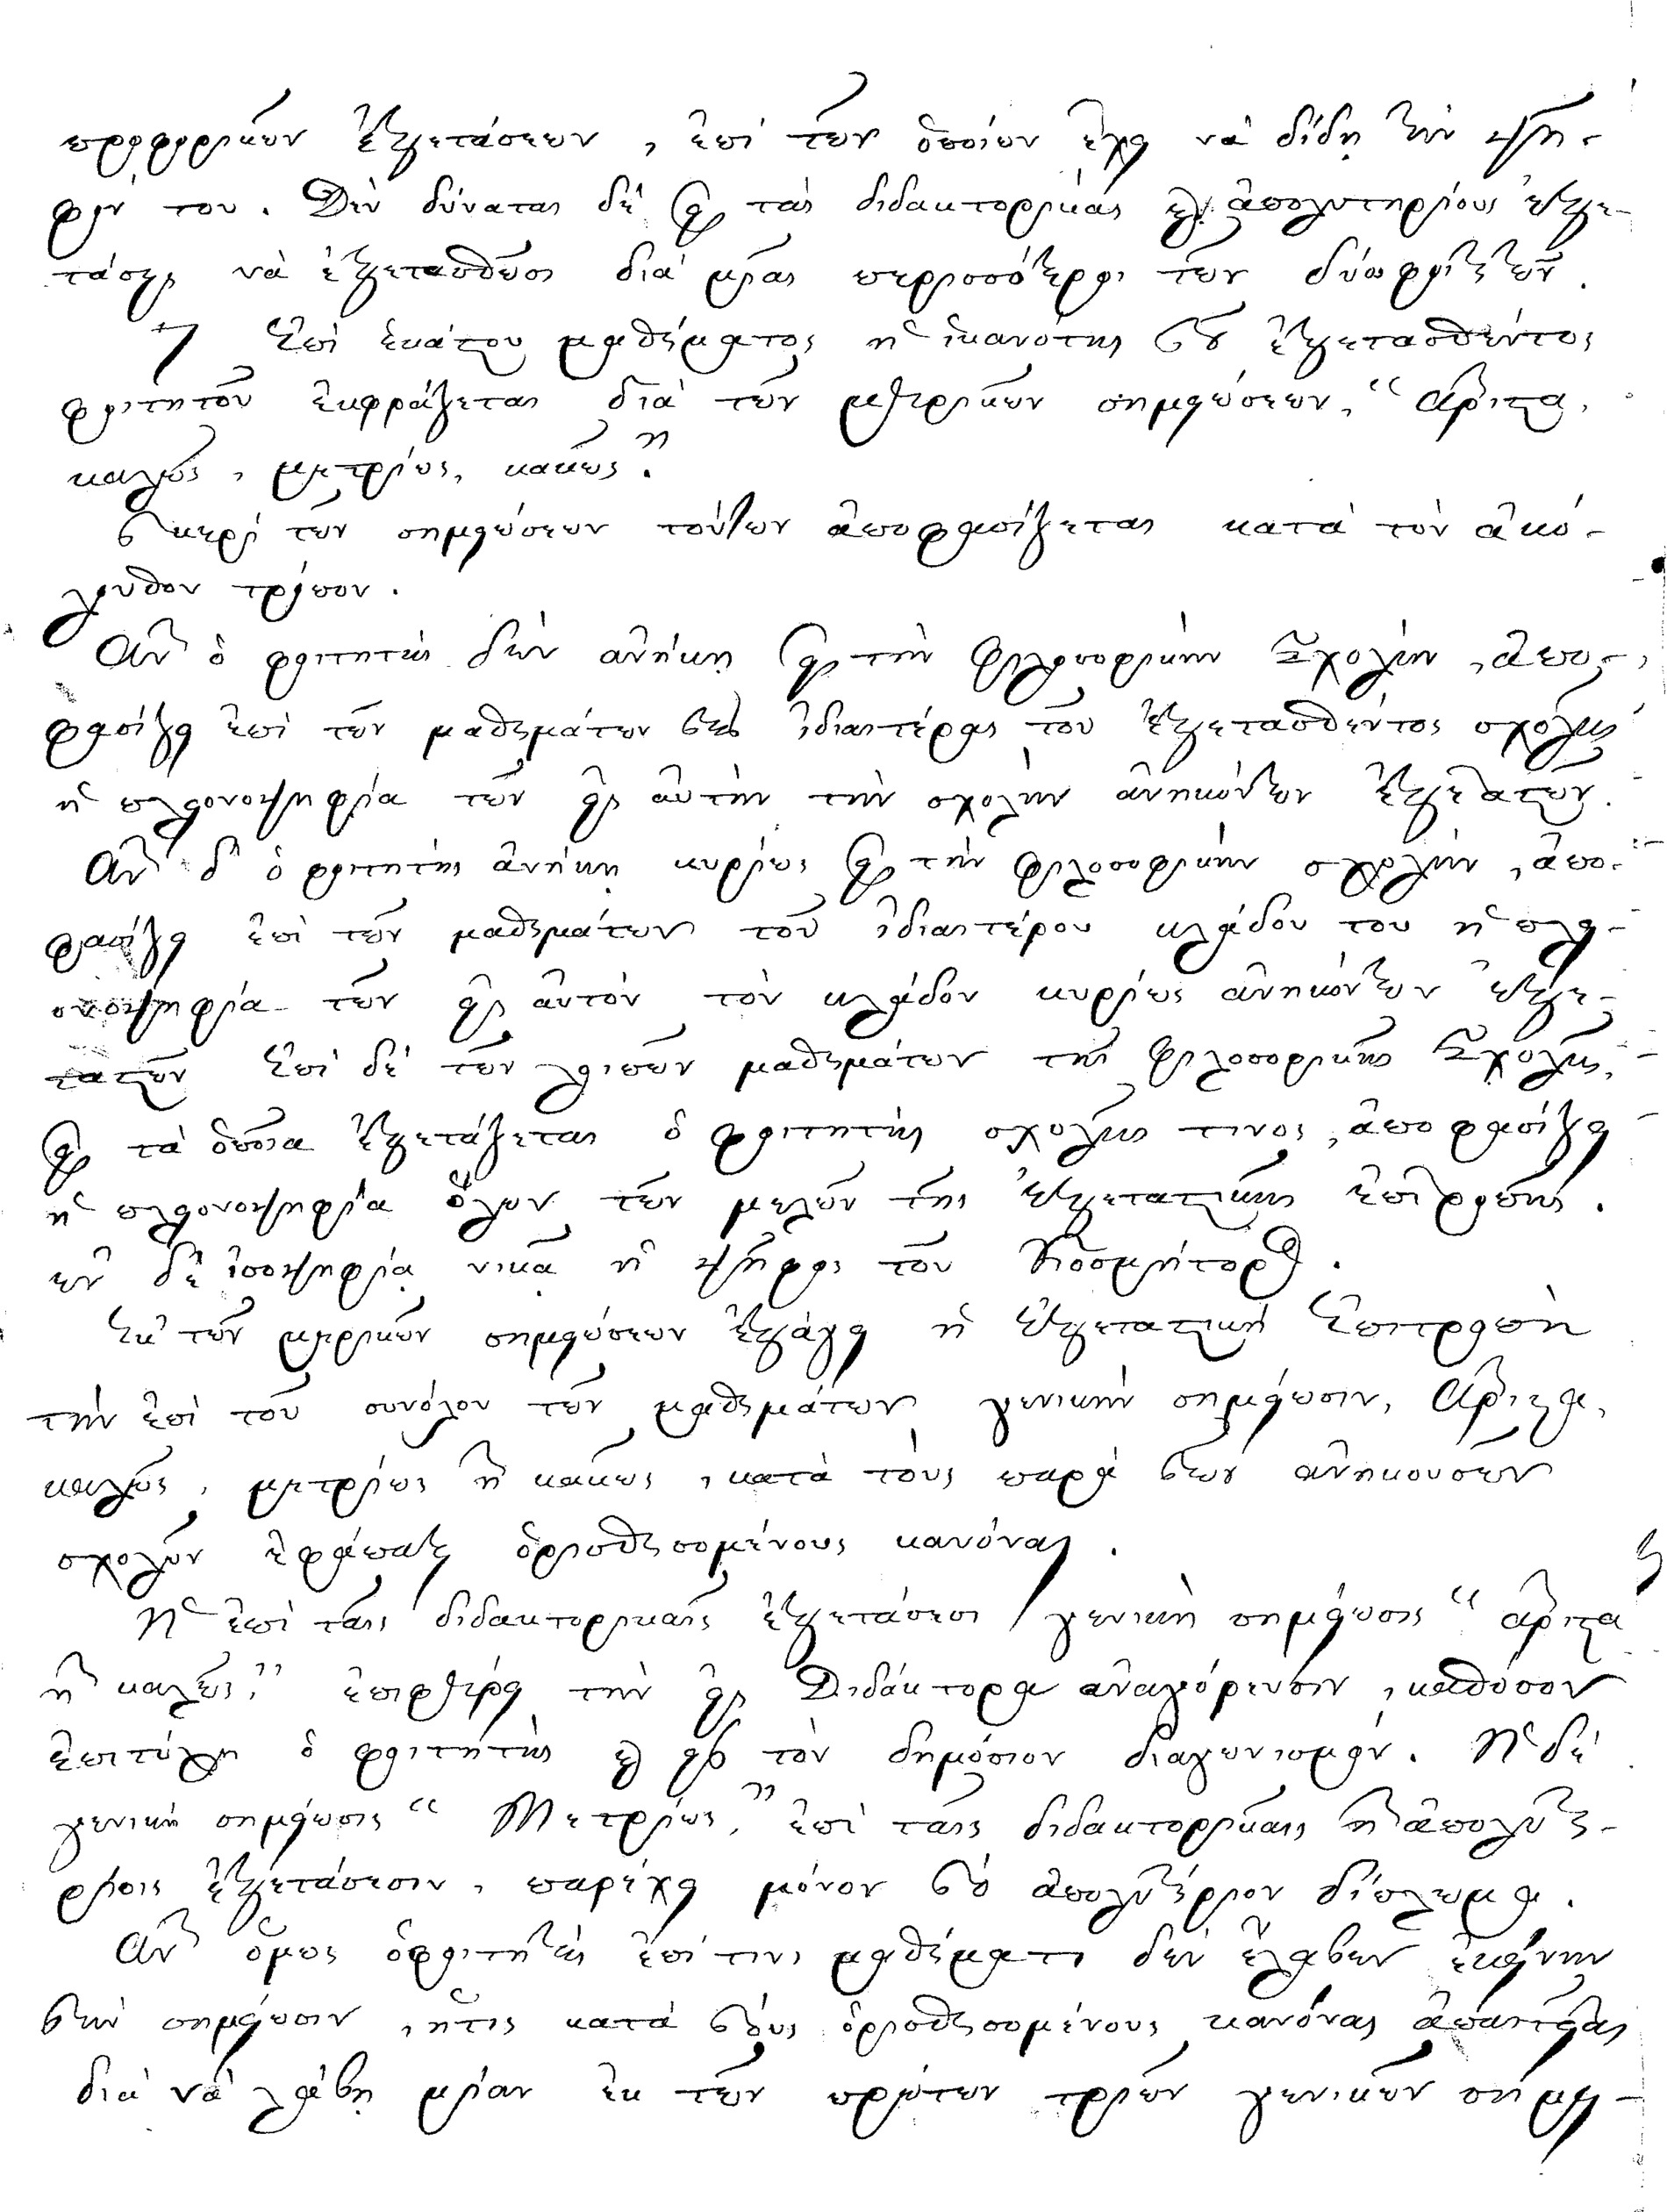 προφορικῶν ἐξετάσεων, ἐπὶ τῶν ὁποίων ἔχει νὰ δίδῃ τὴν ψῆ-
φόν του. Δὲν δύναται δὲ εἰς τὰς διδακτορικὰς καὶ ἀπολυτηρίους ἐξε-
τάσεις νὰ ἐξετασθῶσι διὰ μιᾶς περισσότεροι τῶν δύω φοιτητῶν.
7 Ἐπὶ ἑκάστου μαθήματος ἡ ἱκανότης τοῦ ἐξετασθέντος
φοιτητοῦ ἐκφράζεται διὰ τῶν μερικῶν σημειώσεων, “ Ἄριστα,
καλῶς, μετρίως, κακῶς ”.
περὶ τῶν σημειώσεων τούτων ἀποφασίζεται κατὰ τὸν ἀκό-
λουθον τρόπον.
Ἂν ὁ φοιτητὴς δὲν ἀνήκῃ εἰς τὴν φιλοσοφικὴν Σχολὴν, ἀπο-
φασίζει ἐπὶ τῶν μαθημάτων τῆς ἰδιαιτέρας τοῦ ἐξετασθέντος σχολῆς
ἡ πλειονοψηφία τῶν εἰς αὐτὴν τὴν σχολὴν ἀνηκόντων ἐξεταστῶν.
Ἂν δ' ὁ φοιτητὴς ἀνήκῃ κυρίως εἰς τὴν φιλοσοφικὴν σχολὴν, ἀπο-
φασίζει ἐπὶ τῶν μαθημάτων τοῦ ἰδιαιτέρου κλάδου του ἡ πλει-
ονοψηφία τῶν εἰς αὐτὸν τὸν κλάδον κυρίως ἀνηκόντων ἐξε-
ταστῶν Ἐπὶ δὲ τῶν λοιπῶν μαθημάτων τῆς φιλοσοφικῆς Σχολῆς,
εἰς τὰ ὁποῖα ἐξετάζεται ὁ φοιτητὴς σχολῆς τινος, ἀποφασίζει
ἡ πλειονοψηφία ὅλων τῶν μελῶν τῆς ἐξεταστικῆς ἐπιτροπῆς.
ἐν δὲ ἰσοψηφίᾳ νικᾷ ἡ ψῆφος τοῦ Κοσμήτορος.
Ἐκ τῶν μερικῶν σημειώσεων ἐξάγει ἡ ἐξεταστικὴ Ἐπιτροπὴ
τὴν ἐπὶ τοῦ συνόλου τῶν μαθημάτων γενικὴν σημείωσιν, Ἄριστα,
καλῶς, μετρίως ἢ κακῶς, κατὰ τοὺς παρὰ τῶν ἀνηκουσῶν
σχολῶν ἐφάπαξ ὁρισθησομένους κανόνας.
Ἡ ἐπὶ ταῖς διδακτορικαῖς ἐξετάσεσι γενικὴ σημείωσις “ ἄριστα
ἢ καλῶς ” ἐπιφέρει τὴν εἰς Διδάκτορα ἀναγόρευσιν, καθόσον
ἐπιτύχῃ ὁ φοιτητὴς καὶ εἰς τὸν δημόσιον διαγωνισμόν. Ἡ δὲ
γενικὴ σημείωσις “ Μετρίως, ” ἐπὶ ταῖς διδακτορικαῖς ἢ ἀπολυτη-
ρίοις ἐξετάσεσιν, παρέχει μόνον τὸ ἀπολυτήριον δίπλωμα.
Ἂν ὅμως ὁ φοιτητὴς ἐπί τινι μαθήματι δὲν ἔλαβεν ἐκείνην
τὴν σημείωσιν, ἥτις κατὰ τοὺς ὁρισθησομένους κανόνας ἀπαιτεῖται
διὰ νὰ λάβῃ μίαν ἐκ τῶν πρώτων τριῶν γενικῶν σημει-